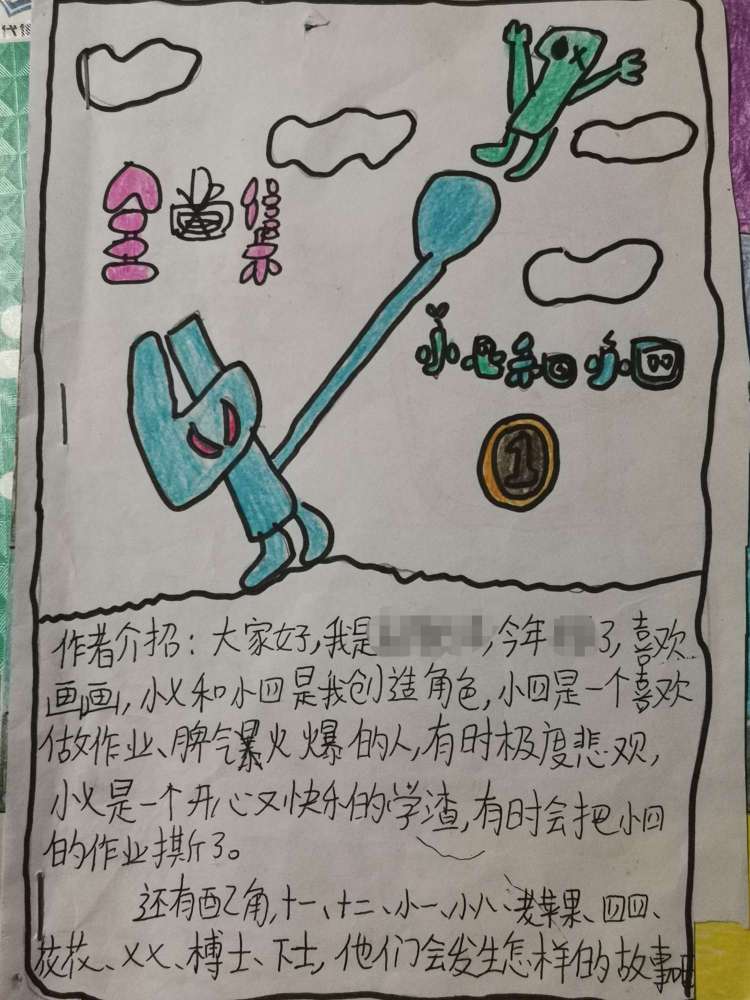 全 集
小乂和小四
1
作者介招：大家好，我是，今年了，喜欢
画画，小乂和小四是我创造角色，小四是一个喜欢
做作业、脾气暴火爆的人，有时极度悲观，
小乂是一个开心又快乐的学渣，有时会把小四
的作业撕了。
还有配乙角，十一、十二、小一、小八、老苹果、四四、
花花、乂乂、榑士、下士，他们会发生怎样的故事吧